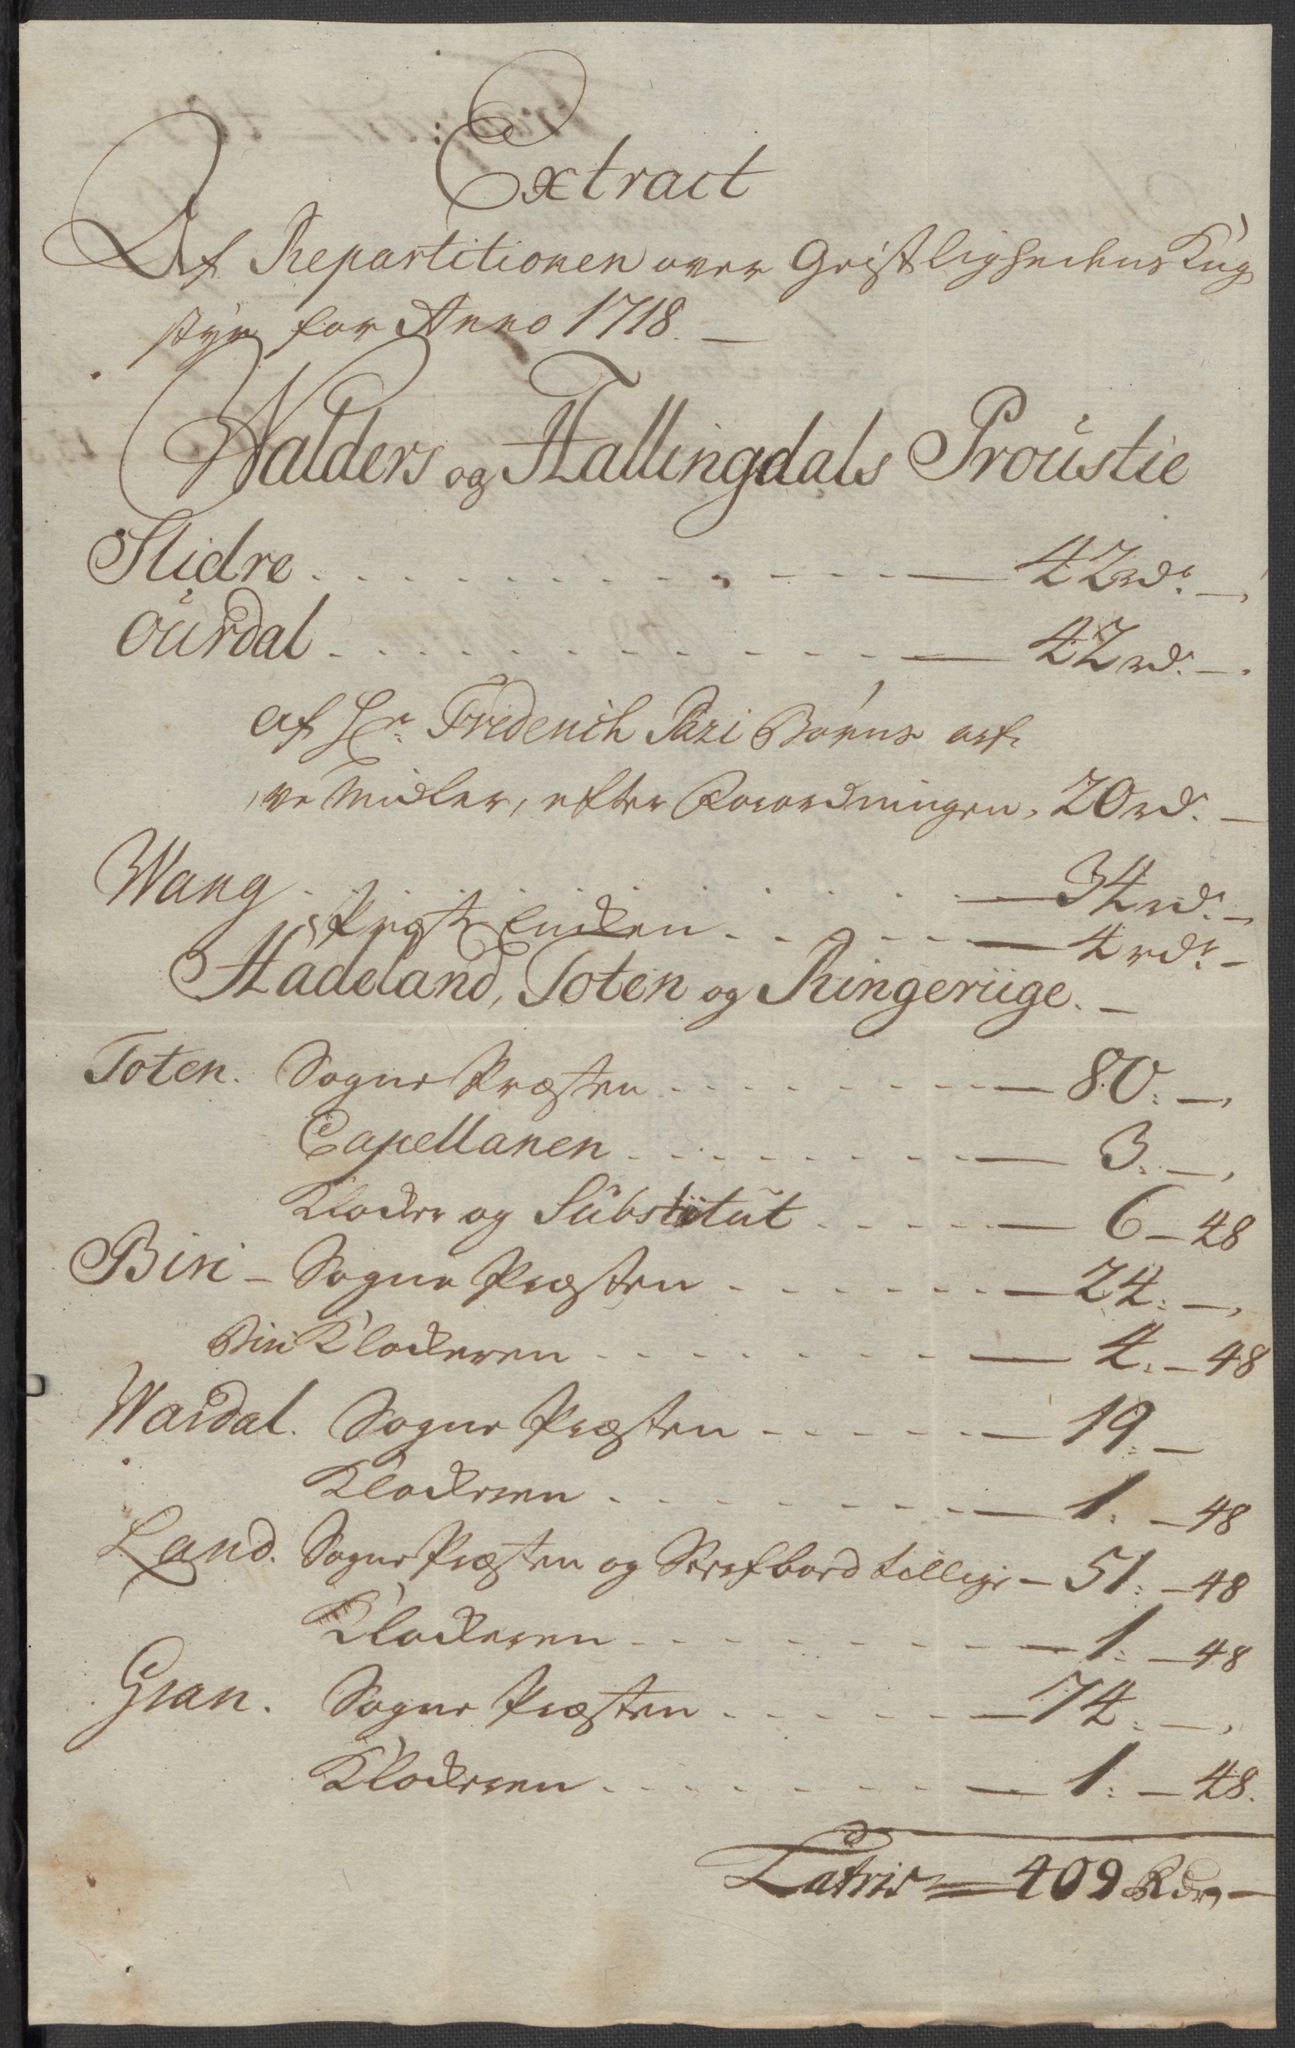 Extract
Af Repartitionen over Geistlighedens Krigs
styr for Anno 1718. —
Walders og Hallingdals Proustie
Slidre . . . . . . . . . — 42 rdr. —,
Ourdal . . . . . . . . . — 42 rdr. —.
af Hr. Friderich Pazi Børns arf-
ve Midler, efter Forordningen, 20 rdr. —
Wang . . . . . . . . . — 34 rdr. —,
Præste Encken . . . . . — 4 rdr. —
Hadeland, Toten og Ringeriige. —
Toten. Sogne Præsten . . . . . . — 80: —,
Capellanen . . . . . . . — 3: —,
Klocker og Substitut . . . . — 6 — 48
Biri — Sogne Præsten . . . . . . — 24: —,
Biri Klockeren . . . . . . . — 4: — 48
Wardal. Sogne Præsten . . . . . — 19: —
Klockeren . . . . . . . — 1: — 48
Land. Sogne Præsten og tillige — 51: — 48
Klockeren . . . . . . . — 1: — 48
Gran. Sogne Præsten . . . . . — 74: —,
Klockeren . . . . . . . — 1: — 48.
Latris — 409 Rdr —